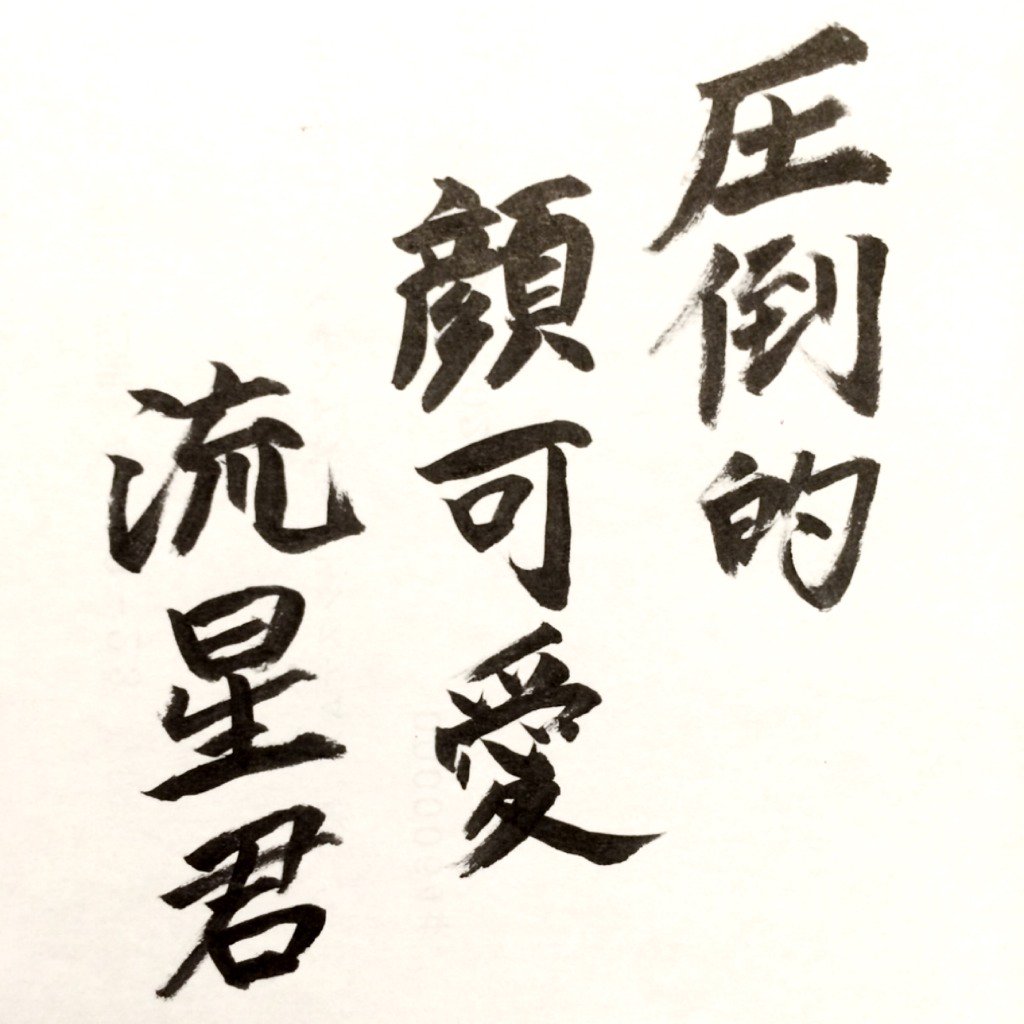 圧倒的
顔可愛
流星君